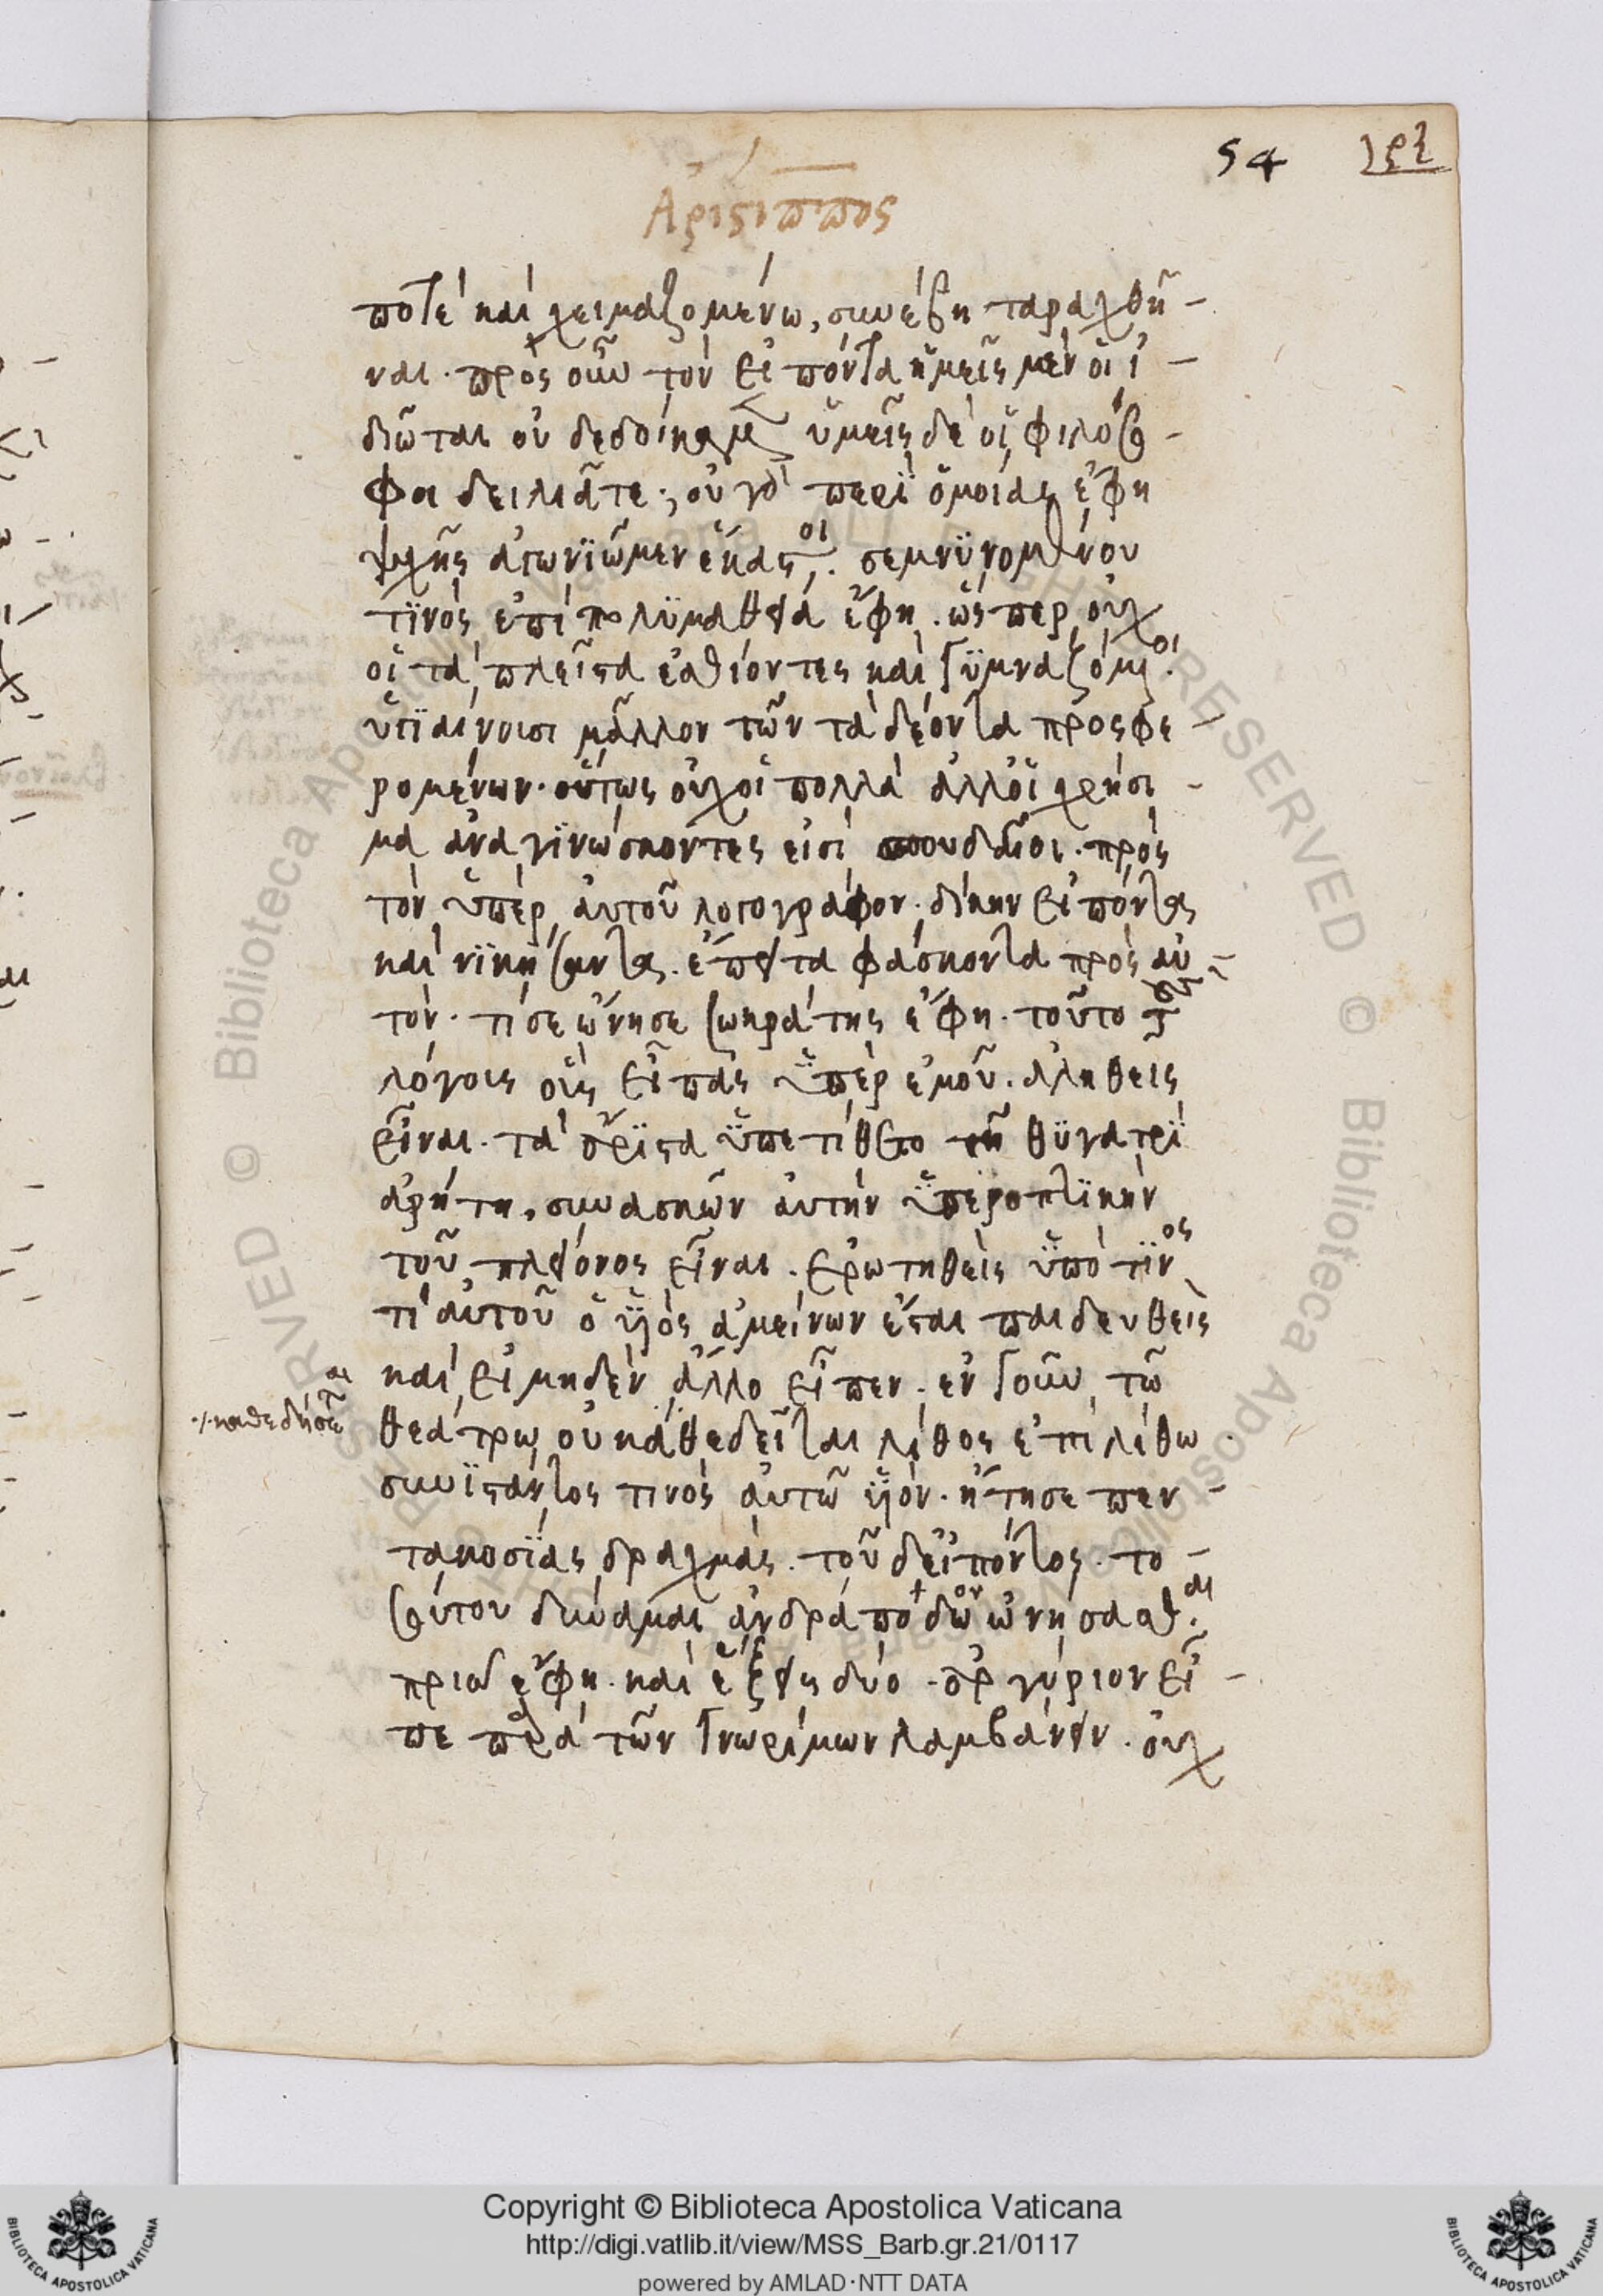 54
Ἀρίστιππος
ποτὲ καὶ χειμαζομένω, συνέβη ταραχθῆ-
ναι. πρὸς οὖν τὸν εἰπόντα ἡμεῖς μὲν οἱ ἰ-
διῶται οὐ δεδοίκαμεν ὑμεῖς δὲ οἱ φιλόσο-
φοι δειλιᾶτε; οὐ γὰρ περὶ ὁμοίας ἔφη
ψυχῆς ἀγωνιῶμεν ἕκαστοι. σεμνϋνομένου
τινὸς ἐπὶ πολϋμαθεία ἔφη. ὥσπερ οὐχ
οἱ τὰ πλεῖστα ἐσθίοντες καὶ γϋμναζόμενοι
ὑγϊαίνουσι μᾶλλον τῶν τὰ δέοντα προσφε-
ρομένων. οὕτως οὐχ οἱ πολλὰ ἀλλ' οἱ χρήσι-
μα ἀναγϊνώσκοντες εἰσὶ σπουδαῖοι. πρὸς
τὸν ὑπὲρ αὐτοῦ λογογράφον. δίκην εἰπόντα
καὶ νϊκήσαντα. ἔπειτα φάσκοντα πρὸς αὐ-
τόν. τί σε ὤνησε σωκράτης ἔφη. τοῦτο τοὺς
λόγοις οὓς εἶπας ὑπὲρ ἐμοῦ. ἀληθεῖς
εἶναι. τὰ ἄρϊστα ὑπετίθετο τῆ θϋγατρϊ
ἀρήτη, συνασκῶν αὐτὴν ὑπεροπτϊκὴν
τοῦ πλείονος εἶναι. ἐρωτηθεὶς ὑπό τϊνος
τί αὐτοῦ ὁ ὑϊὸς ἀμείνων ἔσται παιδευθεὶς
καὶ εἰ μηδὲν ἄλλο εἶπεν. ἐν γοῦν τῶ
καθεδήσεται
θεάτρω οὐ καθεδεῖται λίθος ἐπὶ λίθω.
συνϊστάντος τινὸς αὐτῶ ὑϊόν. ἤτησε πεν-
τακοσϊας δραχμάς. τοῦ δ' εἰπόντος. το-
σούτου δύναμαι ἀνδράποδον ὠνήσασθαι.
πρίω ἔφη. καὶ ἕξεις δύο. ἀργύριον εἶ-
πε παρὰ τῶν γνωρίμων λαμβάνειν. οὐχ
Copyright © Biblioteca Apostolica Vaticana
http://digi.vatlib.it/view/MSS_Barb.gr.21/0117
powered by AMLAD·NTT DATA